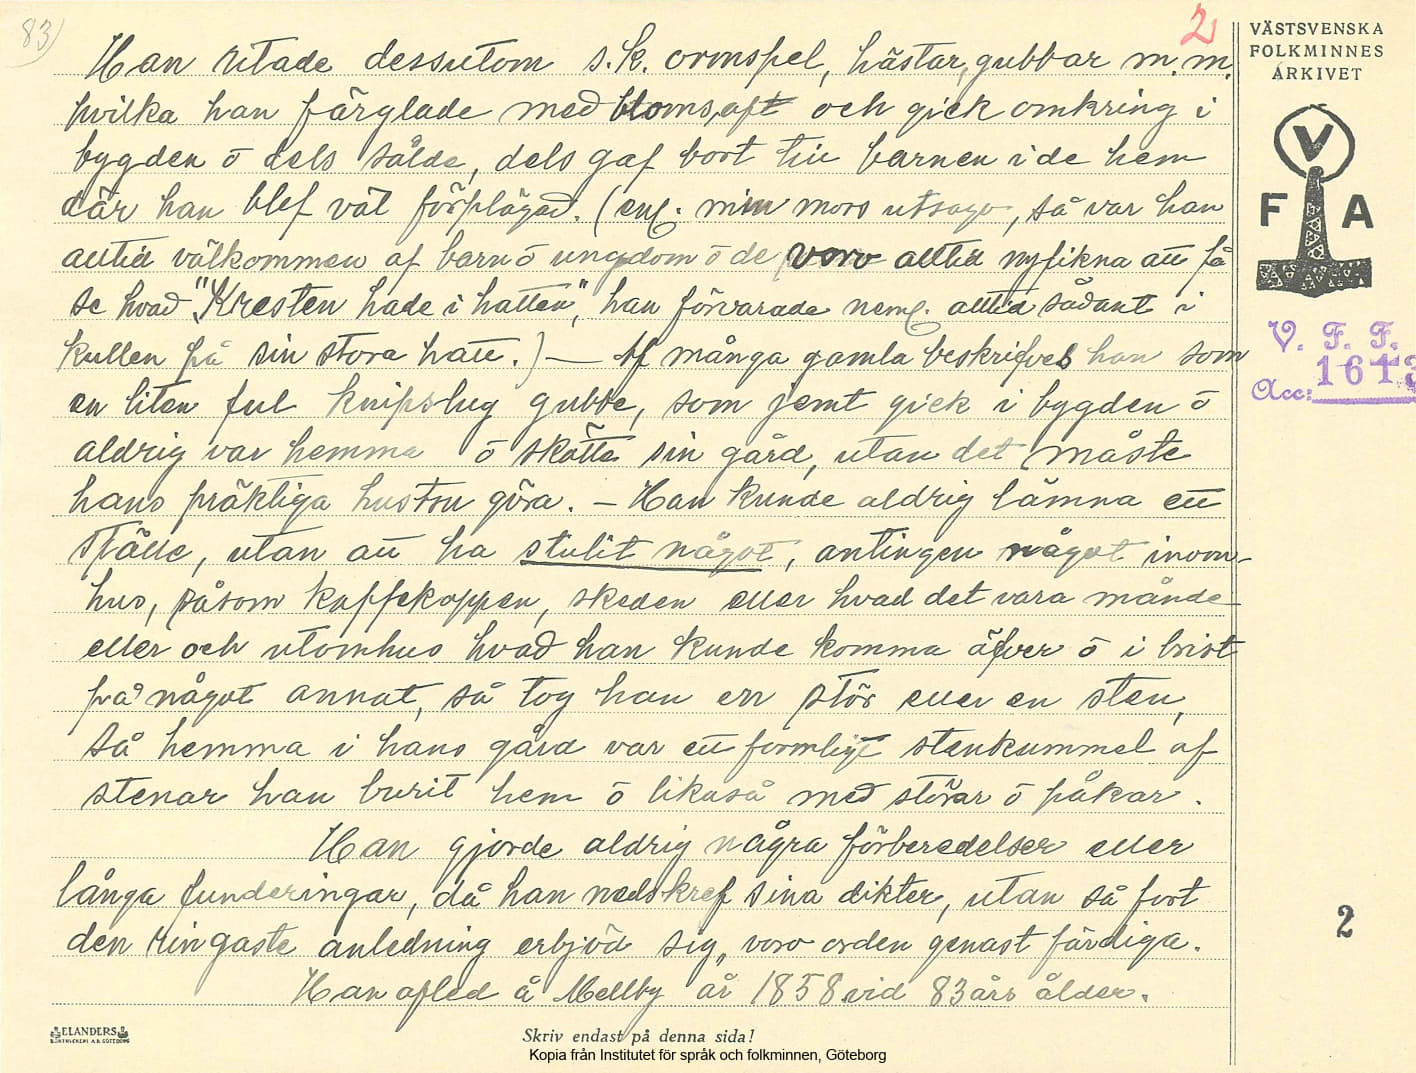 83)
2
VÄSTSVENSKA
FOLKMINNES
ARKIVET
V
F A
V. F. F.
1613
Acc:
Han ritade dessutom s.k. ormspel, hästar, gubbar m.m.
hvilka han färglade med blomsaft och gick omkring i
bygden ō dels sålde, dels gaf bort till barnen i de hem
där han blef väl förplägad. (enl. min mors utsago, så var han
alltid välkommen af barn ō ungdom ō de voro alltid nyfikna att få
se hvad "Kresten hade i hatten", han förvarade neml. alltid sådant i
kullen på sin stora hatt.) — Af många gamla beskrifves han som
en liten ful knipslug gubbe, som jemt gick i bygden ō
aldrig var hemma ō skötte sin gård, utan det måste
hans präktiga hustru göra. – Han kunde aldrig lämna ett
ställe, utan att ha stulit något, antingen något inom-
hus, såsom kaffekoppen, skeden eller hvad det vara månde
eller och utomhus hvad han kunde komma äfver ō i brist
på något annat, så tog han en stör eller en sten,
så hemma i hans gård var ett formligt stenkummel af
stenar han burit hem ō likaså med störar ō påkar.
Han gjorde aldrig några förberedelser eller
långa funderingar, då han nedskref sina dikter, utan så fort
den ringaste anledning erbjöd sig, voro orden genast färdiga.
Han afled å Mellby år 1858 vid 83 års ålder.
2
ELANDERS
BOKTRYCKERI A.B. GÖTEBORG
Skriv endast på denna sida!
Kopia från Institutet för språk och folkminnen, Göteborg